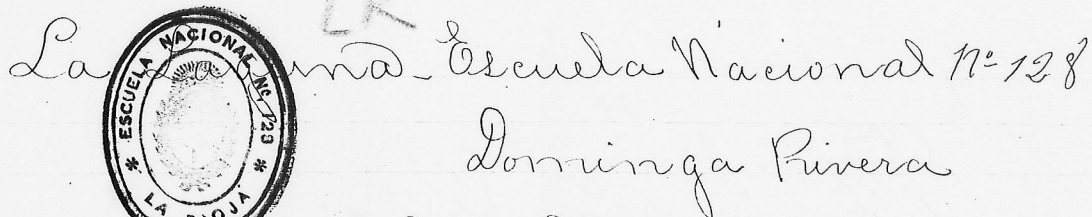 LR
La Laguna - Escuela Nacional Nº 128
Dominga Rivera
* ESCUELA NACIONAL Nº 128 *
LA RIOJA